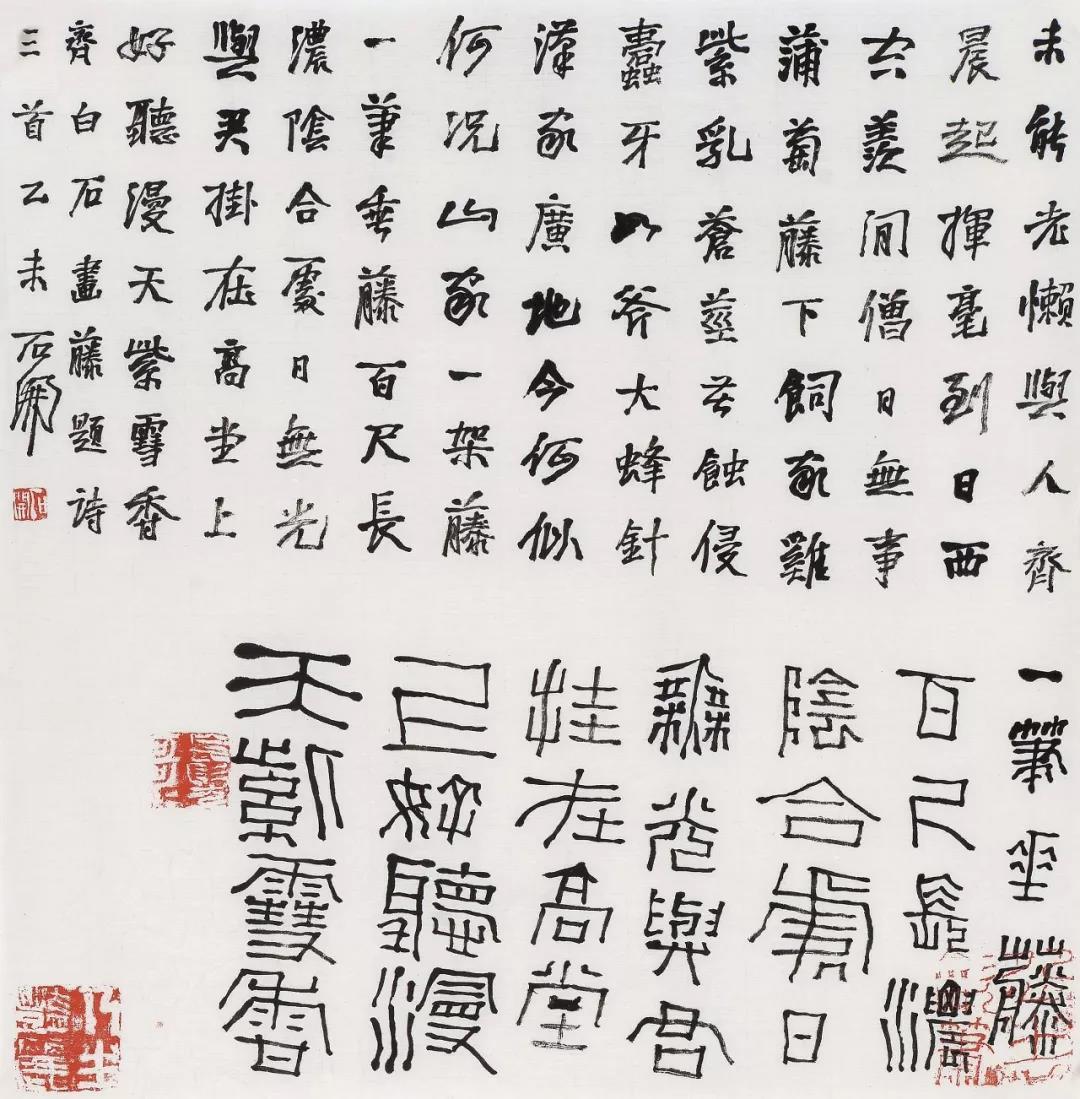 未能老懶與人齊
晨起揮毫到日西
亦羨閒僧日無事
蒲萄藤下飼家雞
紫乳蒼莖苦蝕侵
蠹牙如斧大蜂針
漢家廣地今何似
何況山家一架藤
一筆垂藤百尺長
濃陰合處日無光
與君掛在高堂上
好聽漫天紫雪香
齊白石畫藤題詩
三首乙未石開
石開
一筆垂藤
百尺長濃
陰合處日
無光與君
挂在高堂
上好聽漫
天紫雪香